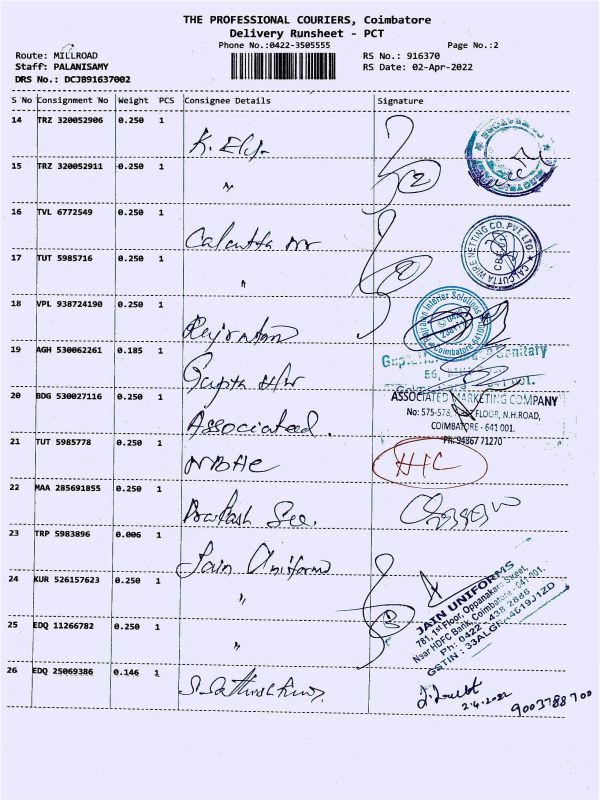 THE PROFESSIONAL COURIERS, Coimbatore
Delivery Runsheet - PCT
Phone No.:0422-3505555 Page No.:2
Route: MILLROAD RS No.: 916370
Staff: PALANISAMY RS Date: 02-Apr-2022
DRS No.: DCJB91637002
S No Consignment No Weight PCS Consignee Details Signature
14 TRZ 320052906 0.250 1
15 TRZ 320052911 0.250 1 "
2
16 TVL 6772549 0.250 1 Calcutta
CALCUTTA WIRE NETTING CO. PVE LTD
17 TUT 5985716 0.250 1 "
2
18 VPL 938724190 0.250 1
Intener Solutions
Coimbatore
19 AGH 530062261 0.185 1 Gupta H/w
20 BDG 530027116 0.250 1 Associated.
ASSOCIATED MARKETING COMPANY
No: 575-578, FLOOR, N.H.ROAD,
COIMBATORE - 641 001.
Ph: 94867 71270
21 TUT 5985778 0.250 1
22 MAA 285691855 0.250 1 Prakash See.
23 TRP 5983896 0.006 1 Jain Uniforms
24 KUR 526157623 0.250 1 "
JAIN UNIFORMS
781, 1st Floor, Oppanakara Street,
Near HDFC Bank, Coimbatore - 641 001.
Ph: 0422 - 438 2886
25 EDQ 11266782 0.250 1 "
26 EDQ 25069386 0.146 1
2.4.2022
9003788700